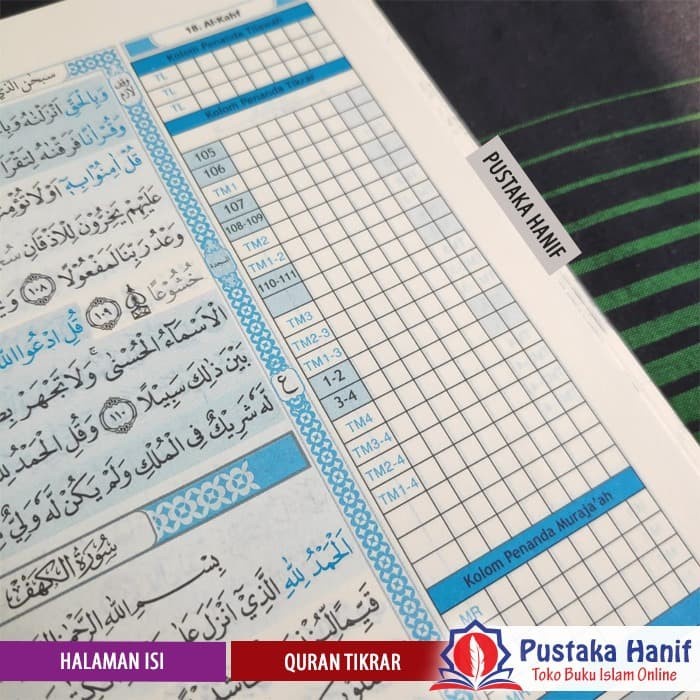 سُبْحٰنَ الَّذِيْ
وقف لازم
وَبِالْحَقِّ اَنْزَلْنٰهُ وَبِا
وَقُرْاٰنًا فَرَقْنٰهُ لِتَقْرَاَ
قُلْ اٰمِنُوْا بِهٖٓ اَوْ لَا تُؤْمِنُ
عَلَيْهِمْ يَخِرُّوْنَ لِلْاَذْقَانِ سُ
وَعْدُ رَبِّنَا لَمَفْعُوْلًا ١٠٨ وَيَ
خُشُوْعًا ١٠٩ قُلِ ادْعُوا اللّٰهَ
الْاَسْمَاۤءُ الْحُسْنٰىۚ وَلَا تَجْهَرْ بِصَ
بَيْنَ ذٰلِكَ سَبِيْلًا ١١٠ وَقُلِ الْحَمْدُ لِلّٰ
لَّهٗ شَرِيْكٌ فِى الْمُلْكِ وَلَمْ يَكُنْ لَّهٗ وَلِيٌّ
ع
سُوْرَةُ الْكَهْفِ
بِسْمِ اللّٰهِ الرَّحْمٰنِ
اَلْحَمْدُ لِلّٰهِ الَّذِيْٓ اَنْزَلَ عَلٰى
18. Al-Kahf
Kolom Penanda Tilawah
TL
TL
TL
Kolom Penanda Tikrar
105
106
TM1
107
108-109
TM2
TM1-2
110-111
TM3
TM2-3
TM1-3
1-2
3-4
TM4
TM3-4
TM2-4
TM1-4
Kolom Penanda Muraja'ah
MR
PUSTAKA HANIF
HALAMAN ISI
QURAN TIKRAR
Pustaka Hanif
Toko Buku Islam Online